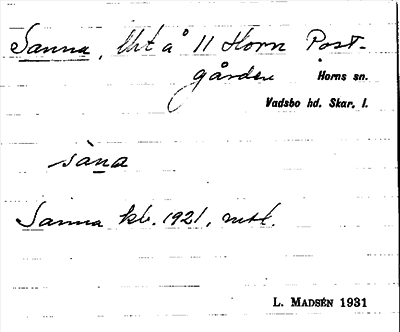 Sanna, lht å 11 Horn Post-
gården Horns sn.
Vadsbo hd. Skar. l.
sàna
Sanna kb. 1921, mtl.
L. MADSÉN 1931